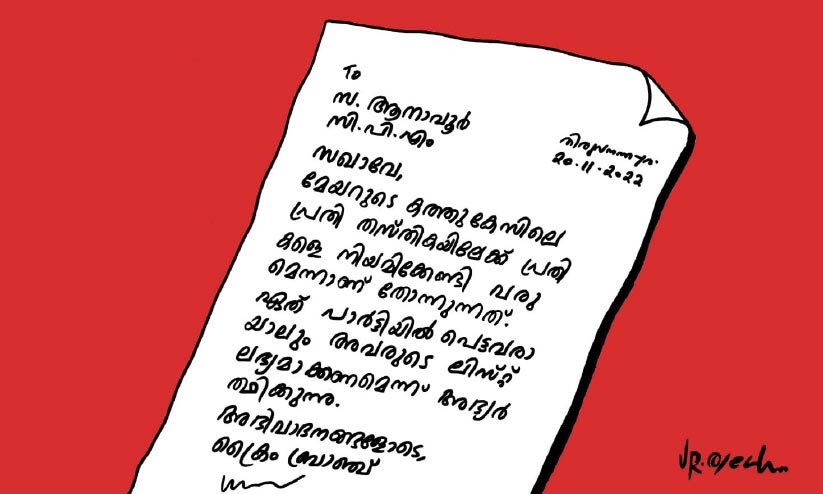 To
സ. ആനാവൂർ
സി.പി.എം
തിരുവനന്തപുരം
20.11.2022
സഖാവേ,
മേയറുടെ കത്തുകേസിലെ
പ്രതി തസ്തികയിലേക്ക് പ്രതി
കളെ നിയമിക്കേണ്ടി വരു
മെന്നാണ് തോന്നുന്നത്.
ഏത് പാർട്ടിയിൽ പെട്ടവരാ
യാലും അവരുടെ ലിസ്റ്റ്
ലഭ്യമാക്കണമെന്ന് അഭ്യർ
ത്ഥിക്കുന്നു.
അഭിവാദനങ്ങളോടെ,
ക്രൈം ബ്രാഞ്ച്